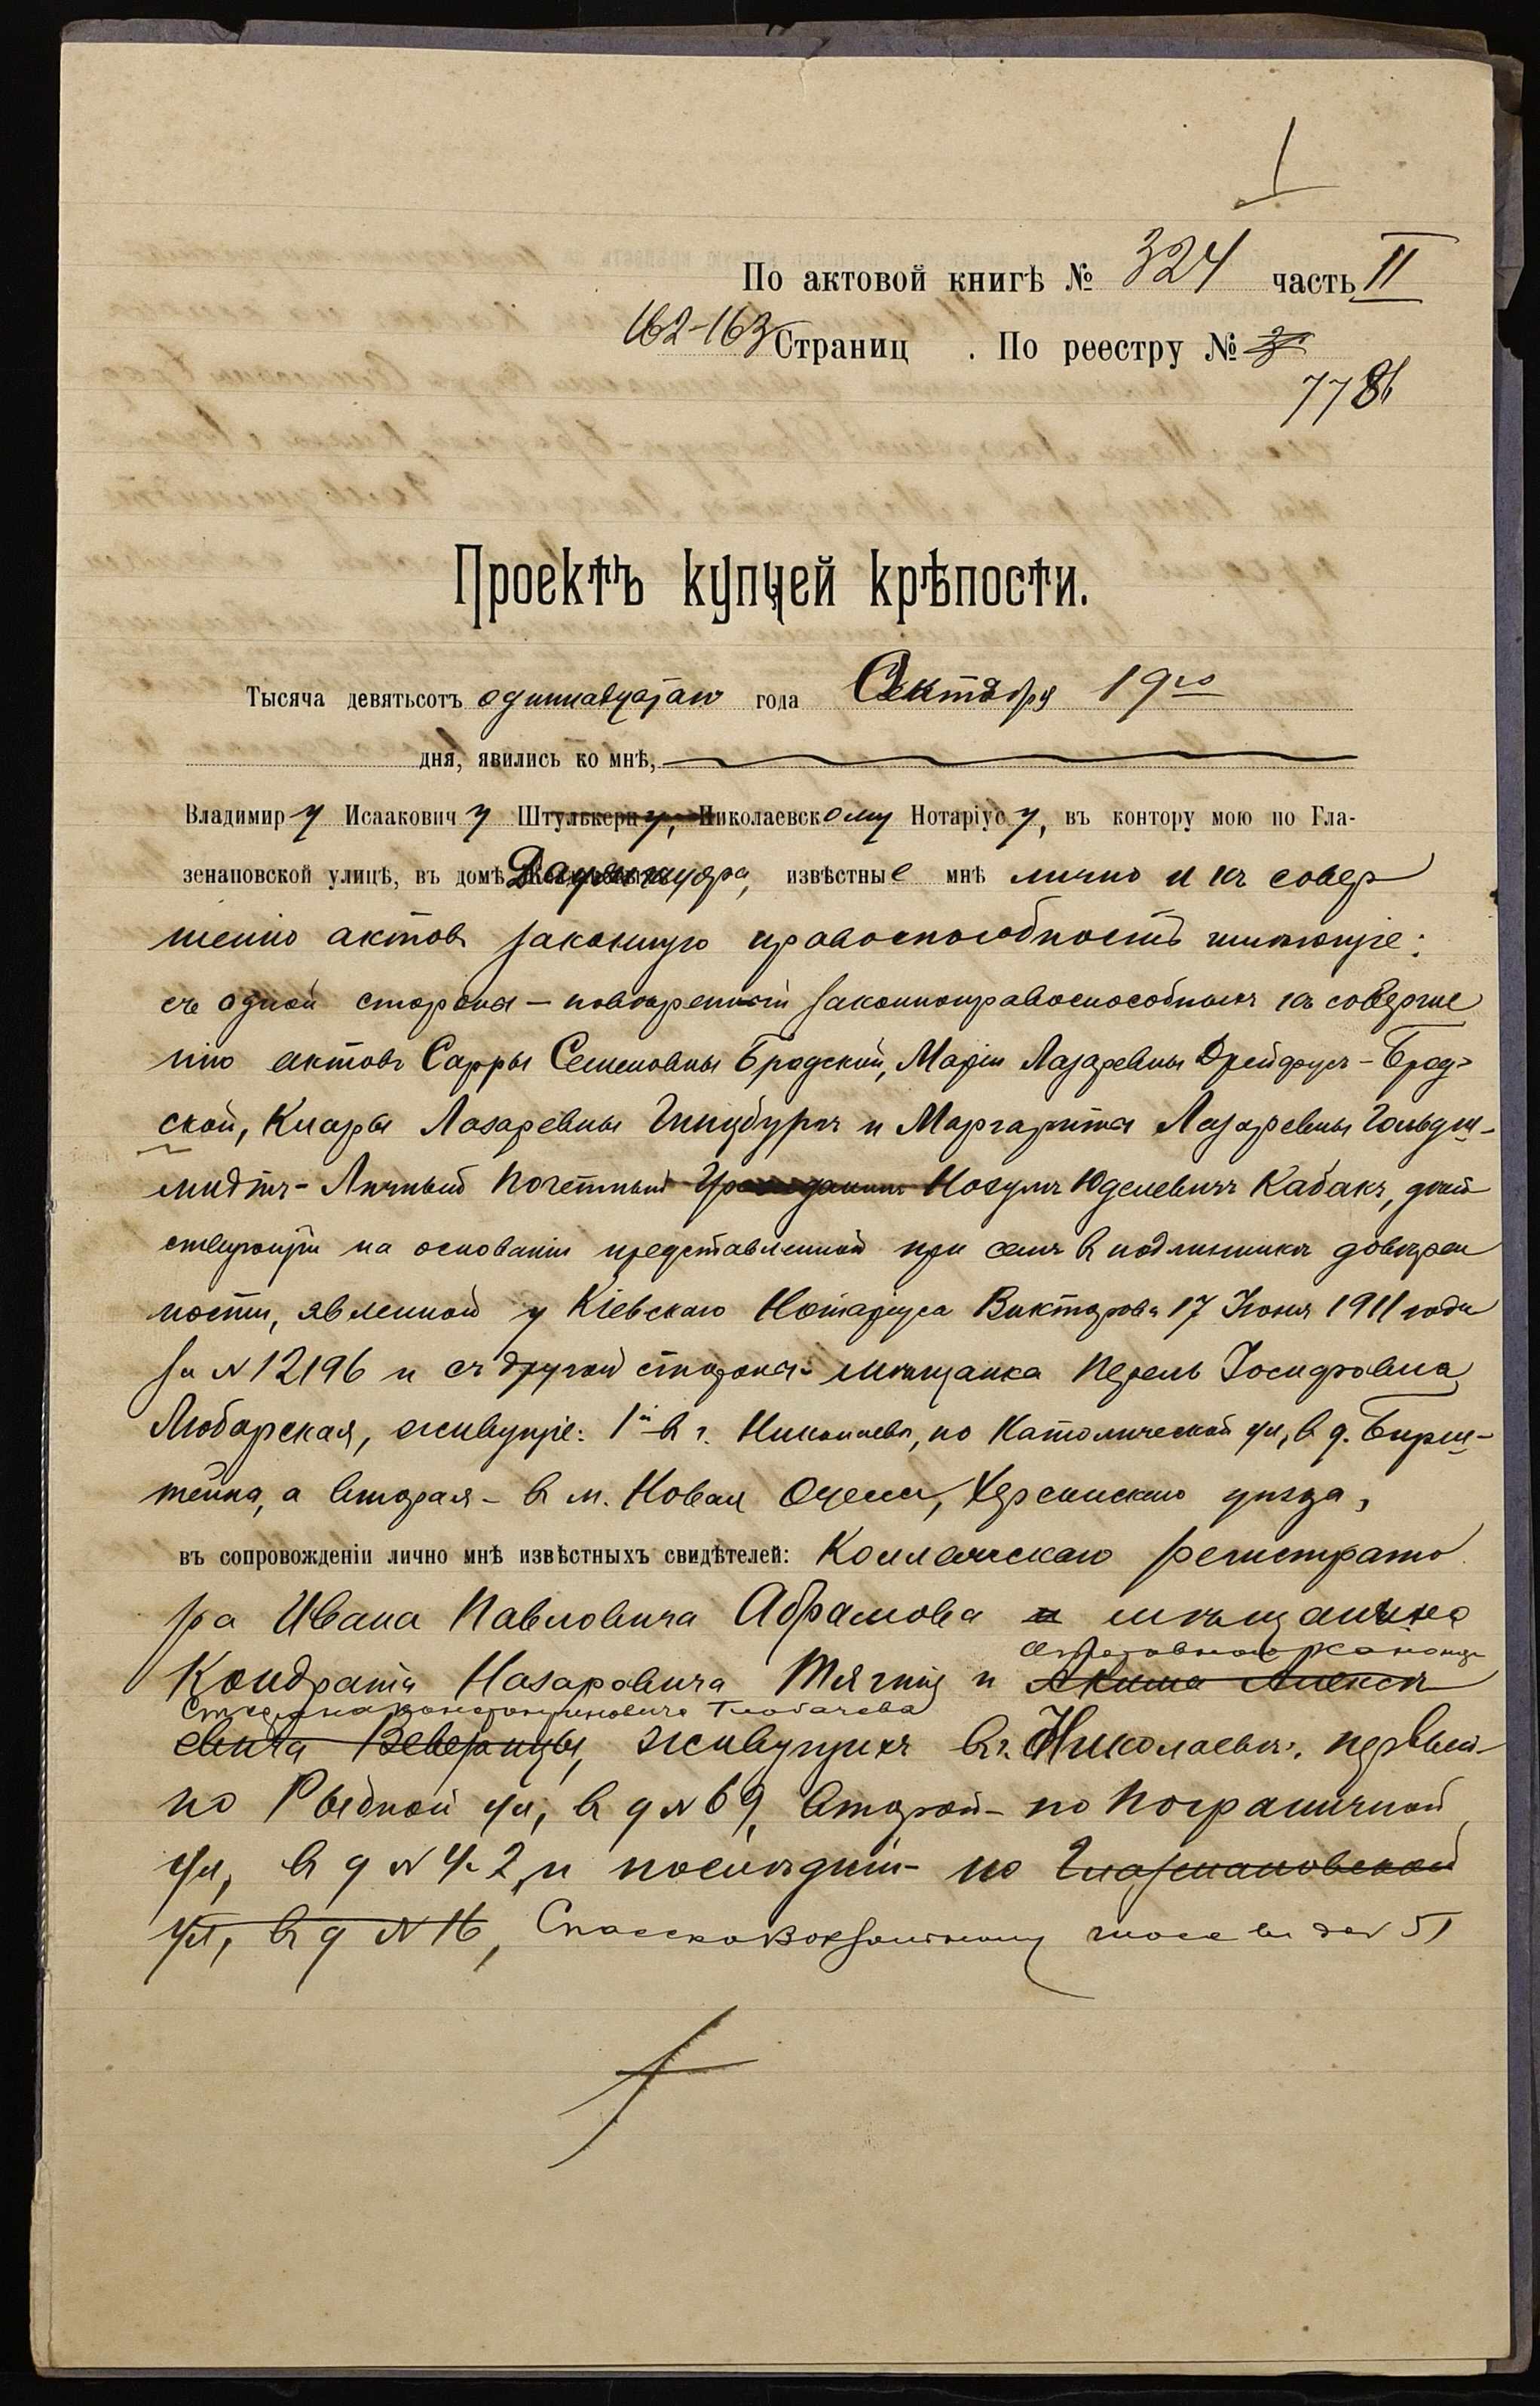 1
По актовой книгѣ № 324 часть II
162-163 Страниц . По реестру №
7786
Проектъ купчей крѣпости.
Тысяча девятьсотъ одиннадцатаго года Сентября 19го
дня, явились ко мнѣ,
Владимиру Исааковичу Штулькерну, Николаевскому Нотаріусу, въ контору мою по Гла-
зенаповской улицѣ, въ домѣ извѣстные мнѣ лично и къ совер
шенію актовъ законную правоспособность имѣющіе:
съ одной стороны – повѣренный законноправоспособныхъ къ соверше
нію актовъ Сарры Семеновны Бродской, Маріи Лазаревны Дрейфусъ-Брод-
ской, Клары Лазаревны Гинцбургъ и Маргариты Лазаревны Гольдш-
мидтъ - Личный Почетный Гражданинъ Нохумъ Юделевичъ Кабакъ, дѣй
ствующій на основаніи представленной при семъ въ подлинникѣ довѣрен
ности, явленной у Кіевскаго Нотаріуса Викторова 17 Іюня 1911 года
за № 12196 и съ другой стороны - мѣщанка Перель Іосифовна
Любарская, живущіе: 1й въ г. Николаевѣ, по Католической ул, въ д. Бирш-
тейна, а вторая - въ м. Новая Одесса, Херсонскаго уѣзда,
въ сопровожденіи лично мнѣ извѣстныхъ свидѣтелей: Коллежскаго регистрато
ра Ивана Павловича Абрамова и мѣщанина
Кондрата Назаровича Тягній и Акима Алексѣ
Степана Константиновича
евича Веверицы, живущихъ въ г. Николаевѣ, первый-
по Рыбной ул, въ д № 69, второй - по Пограничной
ул, въ д № 42 и послѣдній - по Глазенаповской
ул, въ д № 16, Спасско Вокзальному въ 51